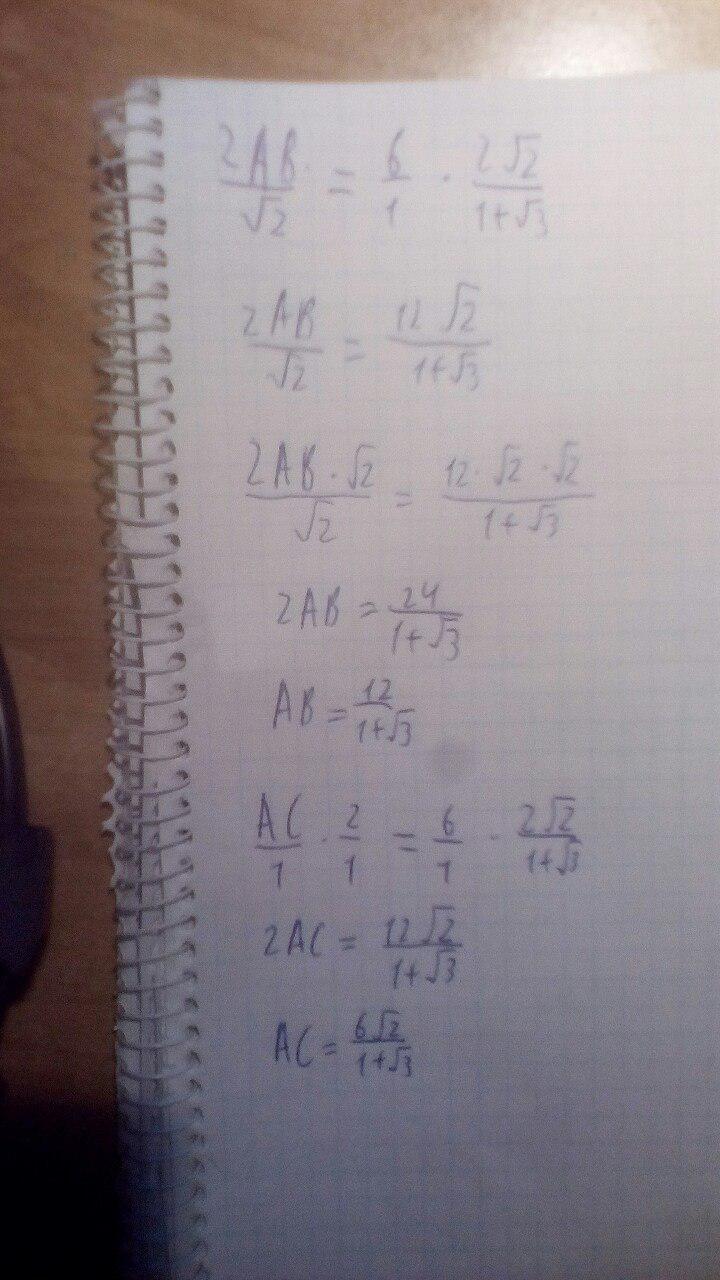 2AB/√2 = 6/1 · 2√2/(1+√3)
2AB/√2 = 12√2/(1+√3)
2AB·√2/√2 = 12·√2·√2/(1+√3)
2AB = 24/(1+√3)
AB = 12/(1+√3)
AC/1 · 2/1 = 6/1 · 2√2/(1+√3)
2AC = 12√2/(1+√3)
AC = 6√2/(1+√3)